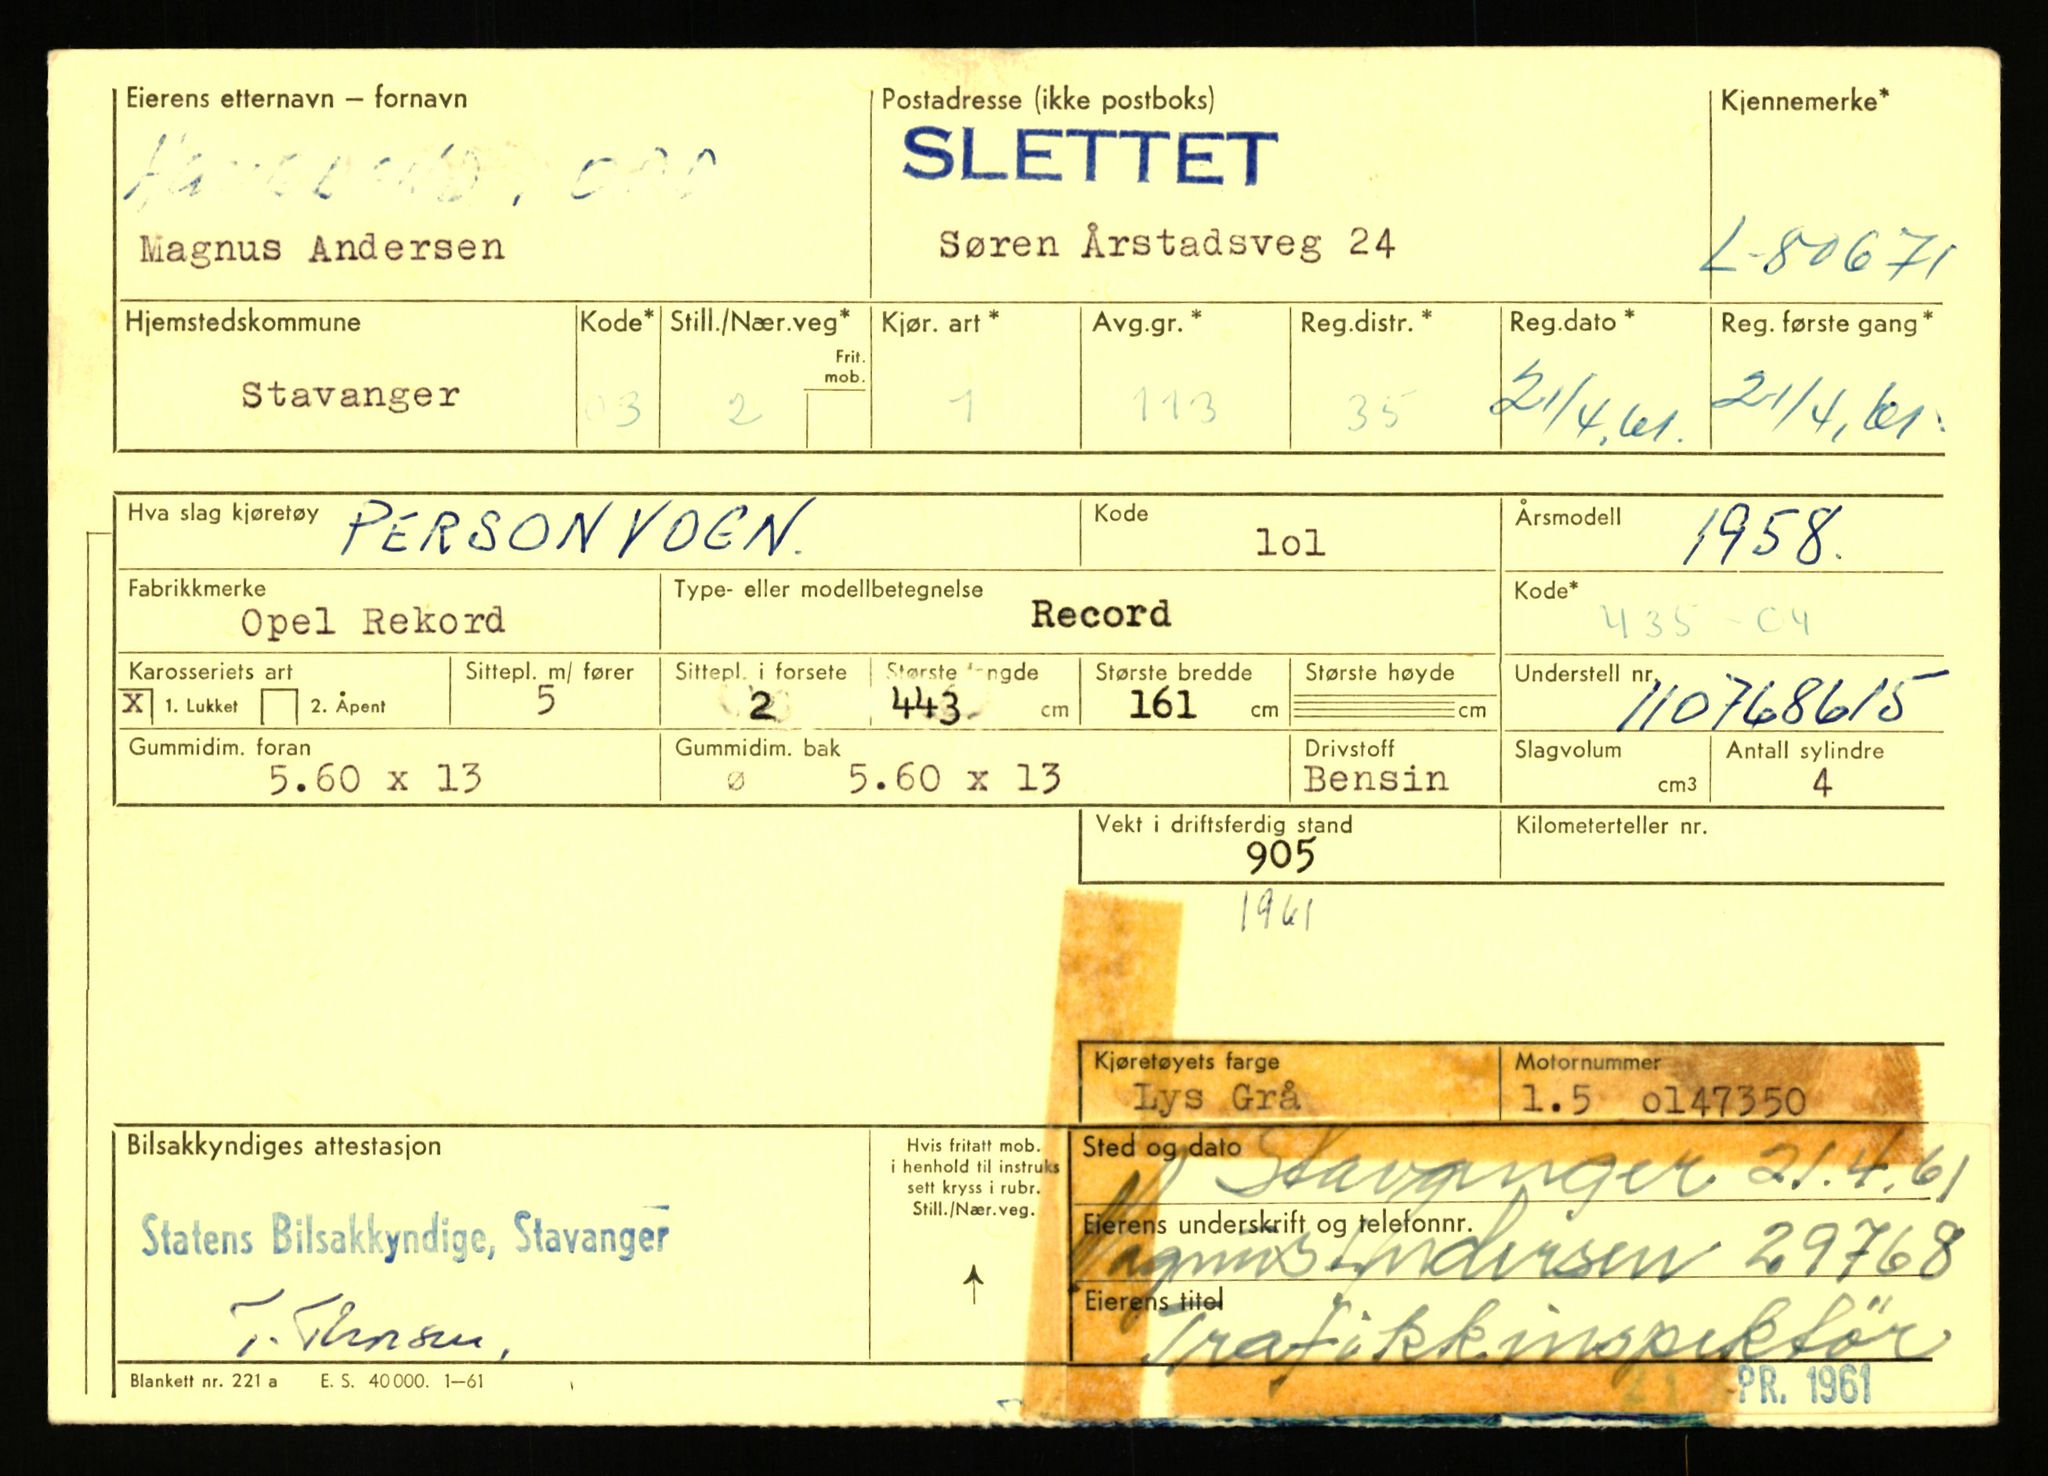 Eierens etternavn – fornavn
Postadresse (ikke postboks)
Kjennemerke*
SLETTET
Magnus Andersen
Søren Årstadsveg 24
L-80671
Hjemstedskommune
Kode*
Still./Nær.veg*
Frit. mob.
Kjør. art *
Avg.gr. *
Reg.distr. *
Reg.dato *
Reg. første gang *
Stavanger
03
2
1
113
35
21/4.61.
21/4.61.
Hva slag kjøretøy PERSONVOGN.
Kode
lol
Årsmodell
1958.
Fabrikkmerke
Opel Rekord
Type- eller modellbetegnelse
Record
Kode*
435-04
Karosseriets art
X 1. Lukket 2. Åpent
Sittepl. m/ fører
5
Sittepl. i forsete
2
Største lengde
443 cm
Største bredde
161 cm
Største høyde
cm
Understell nr.
110768615
Gummidim. foran
5.60 x 13
Gummidim. bak
ø 5.60 x 13
Drivstoff
Bensin
Slagvolum
cm3
Antall sylindre
4
Vekt i driftsferdig stand
905
Kilometerteller nr.
1961
Kjøretøyets farge
Lys Grå
Motornummer
1.5 ol47350
Bilsakkyndiges attestasjon
Statens Bilsakkyndige, Stavanger
T. Thorsen,
Hvis fritatt mob.
i henhold til instruks
sett kryss i rubr.
Still./Nær.veg.
↑
Sted og dato
Stavanger 21.4.61
Eierens underskrift og telefonnr.
Magnus Andersen 29768
Eierens titel
Trafikkinspektör
Blankett nr. 221 a E. S. 40 000. 1–61
21 PR. 1961